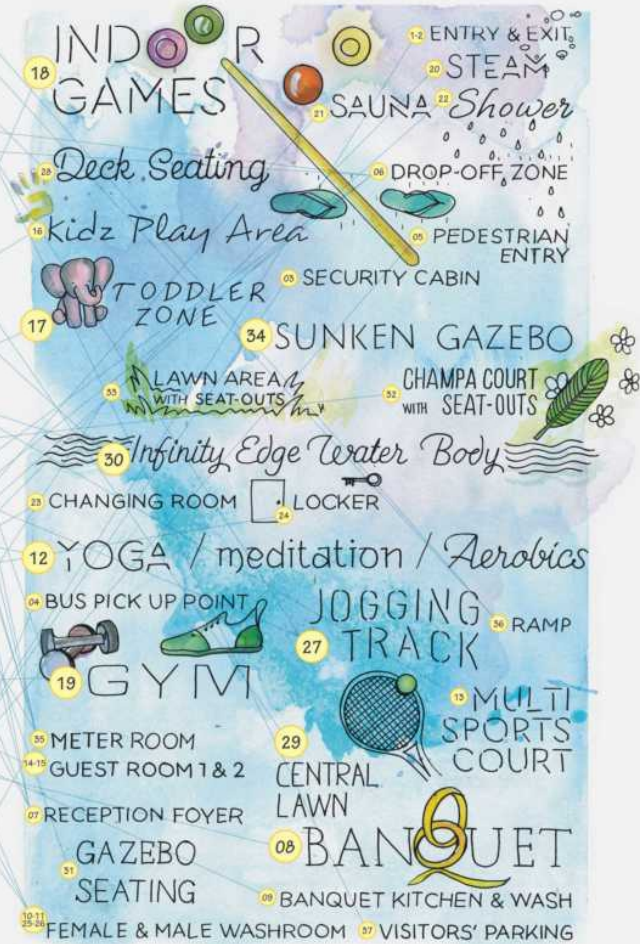 18 INDOOR
GAMES
1-2 ENTRY & EXIT
20 STEAM
21 SAUNA 22 Shower
28 Deck Seating
06 DROP-OFF ZONE
16 Kidz Play Area
05 PEDESTRIAN
ENTRY
03 SECURITY CABIN
17 TODDLER
ZONE
34 SUNKEN GAZEBO
33 LAWN AREA
WITH SEAT-OUTS
32 CHAMPA COURT
WITH SEAT-OUTS
30 Infinity Edge Water Body
23 CHANGING ROOM
24 LOCKER
12 YOGA / meditation / Aerobics
04 BUS PICK UP POINT
27 JOGGING
TRACK
36 RAMP
19 GYM
13 MULTI
SPORTS
COURT
35 METER ROOM
14-15 GUEST ROOM 1 & 2
29
CENTRAL
LAWN
07 RECEPTION FOYER
08 BANQUET
31 GAZEBO
SEATING
09 BANQUET KITCHEN & WASH
10-11
25-26 FEMALE & MALE WASHROOM
37 VISITORS' PARKING